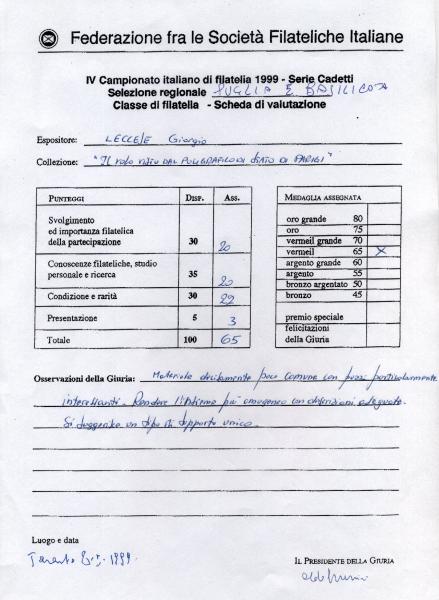 Federazione fra le Società Filateliche Italiane
IV Campionato italiano di filatelia 1999 - Serie Cadetti
Selezione regionale PUGLIA E BASILICATA
Classe di filatelia - Scheda di valutazione
Espositore: LECCESE Giorgio
Collezione: "Il volo visto dal poligrafico di stato di Parigi"
PUNTEGGI DISP. ASS.
Svolgimento
ed importanza filatelica
della partecipazione 30 20
Conoscenze filateliche, studio
personale e ricerca 35 20
Condizione e rarità 30 22
Presentazione 5 3
Totale 100 65
MEDAGLIA ASSEGNATA
oro grande 80
oro 75
vermeil grande 70
vermeil 65 X
argento grande 60
argento 55
bronzo argentato 50
bronzo 45
premio speciale
felicitazioni
della Giuria
Osservazioni della Giuria: Materiale decisamente poco comune con pezzi particolarmente
interessanti. Rendere l'insieme più omogeneo con descrizioni adeguate.
Si suggerisce un tipo di supporto unico.
Luogo e data
Taranto 1999.
IL PRESIDENTE DELLA GIURIA